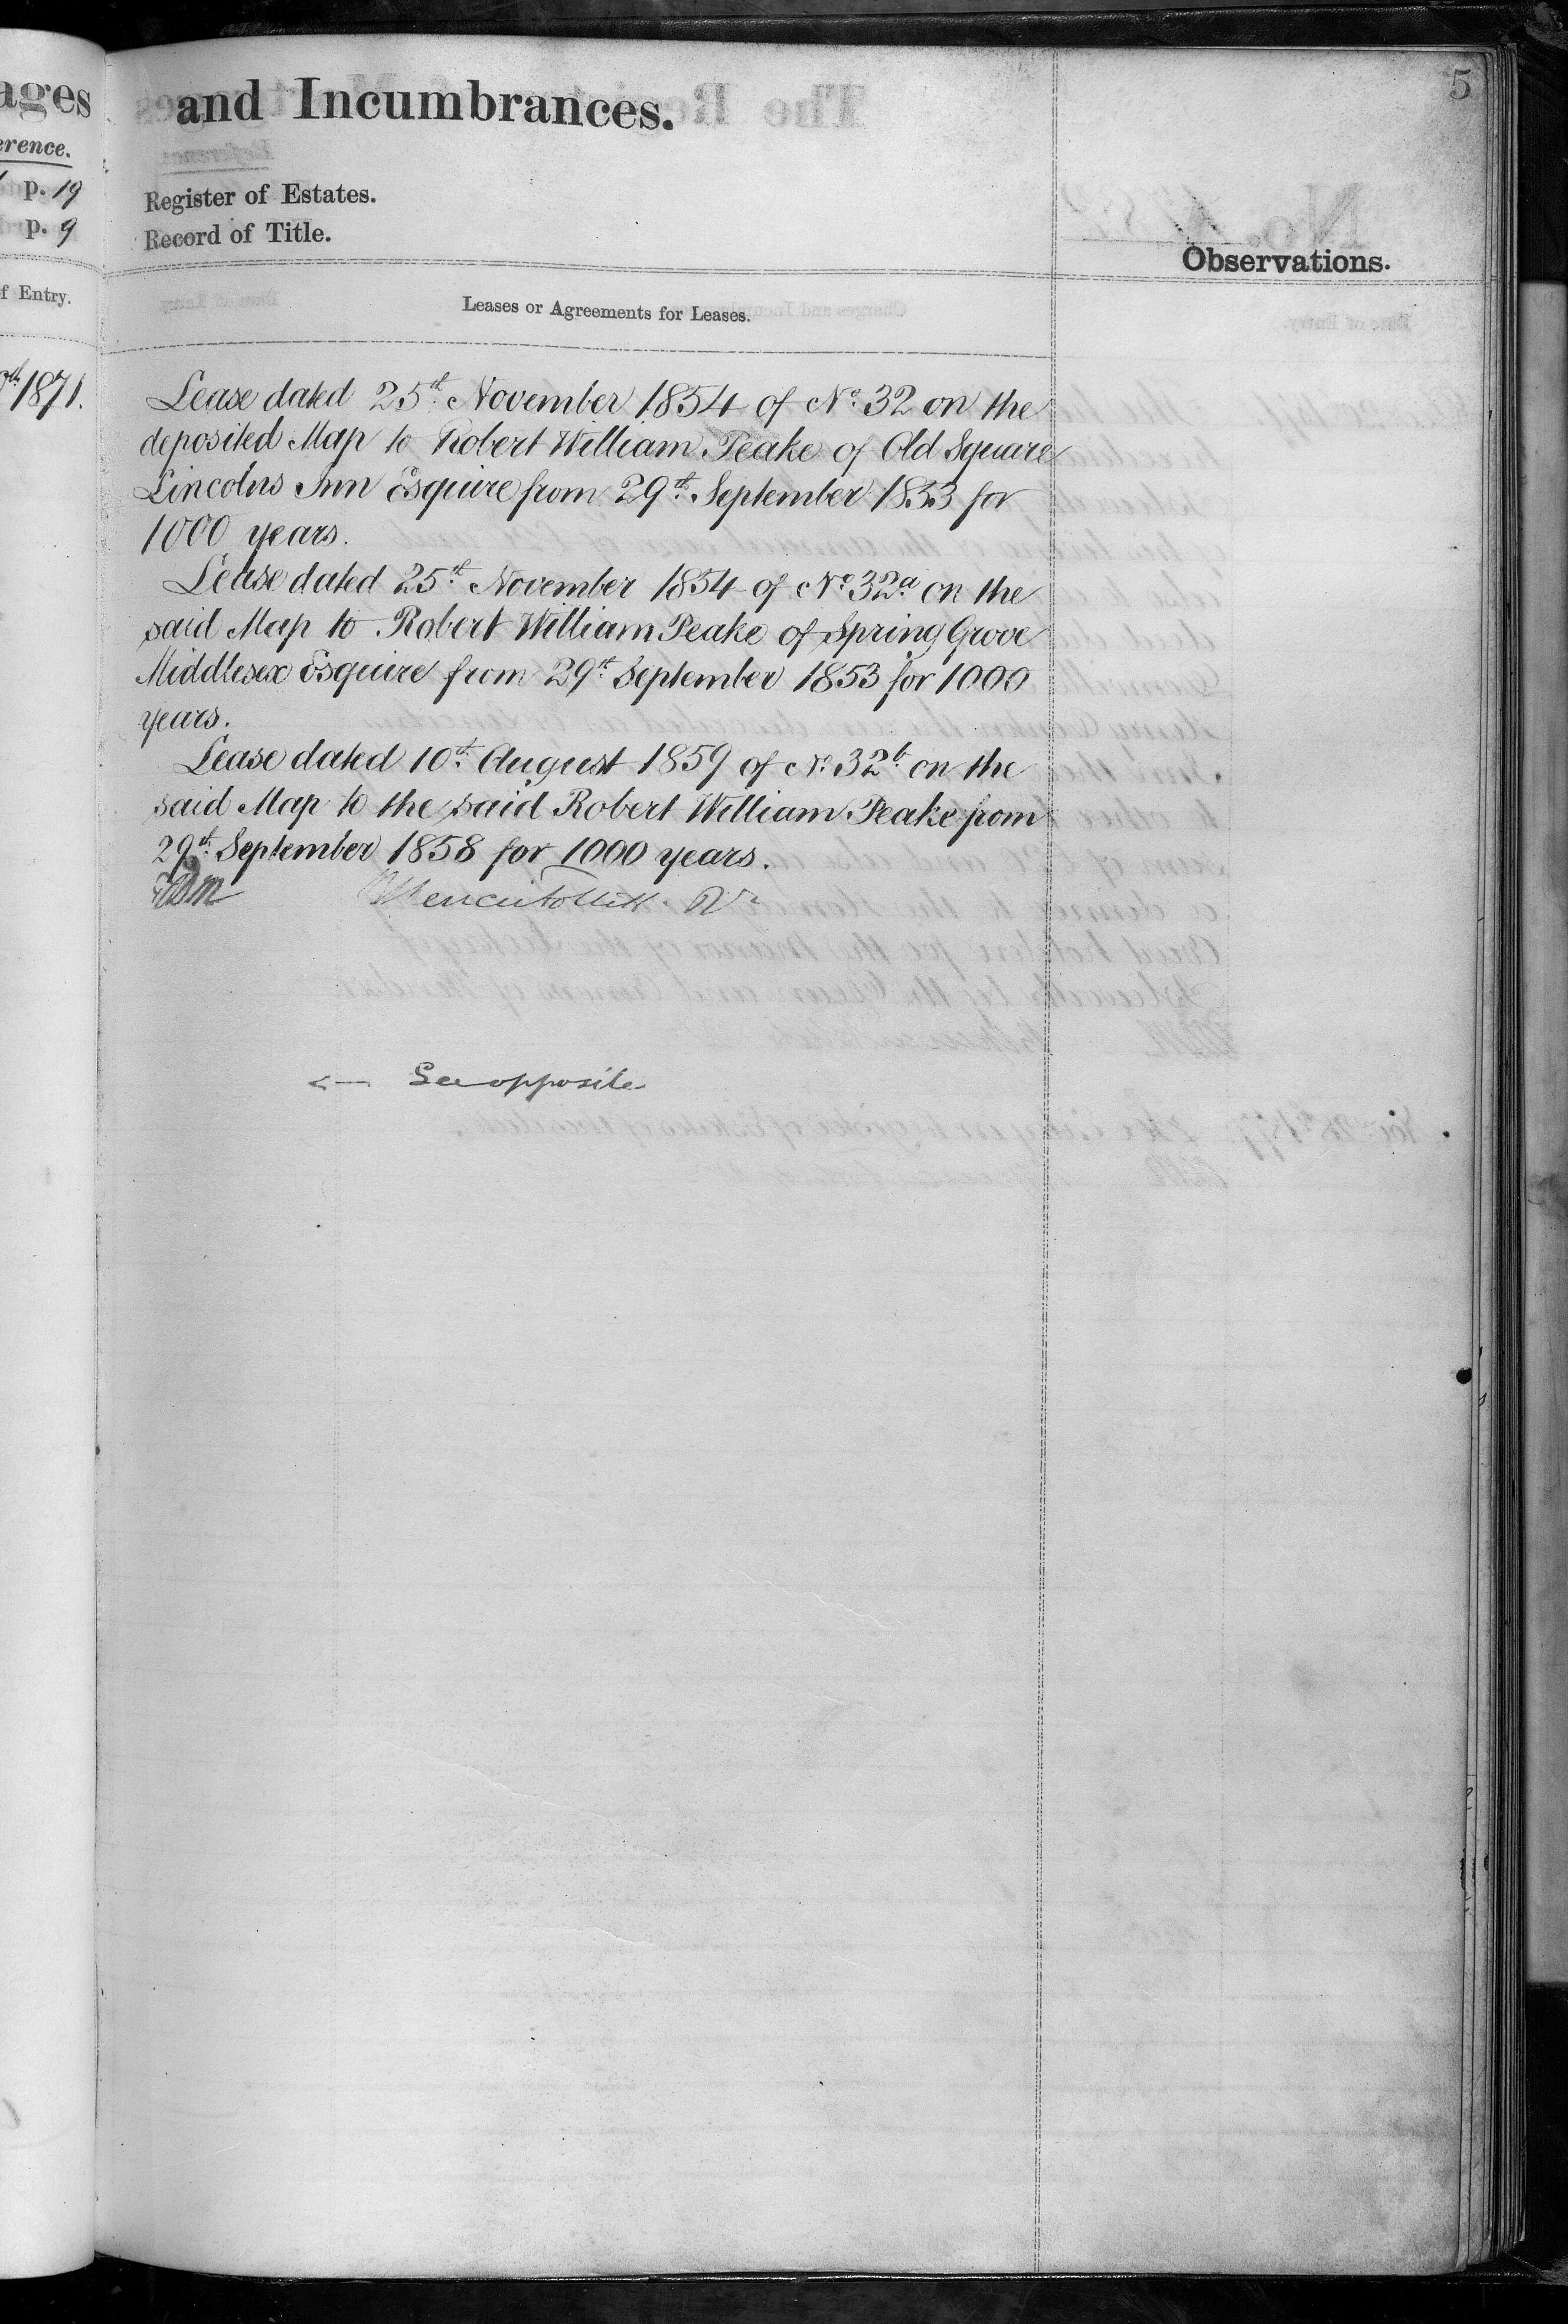 ages
erence.
p. 19
p. 9
f Entry.
1871.
5
and Incumbrances.
Register of Estates.
Record of Title.
Observations.
Leases or Agreements for Leases.
Lease dated 25th November 1854 of No 32 on the
deposited Map to Robert William Peake of Old Square
Lincolns Inn Esquire from 29th September 1853 for
1000 years.
Lease dated 25th November 1854 of No 32a on the
said Map to Robert William Peake of Spring Grove
Middlesex Esquire from 29th September 1853 for 1000
years.
Lease dated 10th August 1859 of No 32b on the
said Map to the said Robert William Peake from
29th September 1858 for 1000 years.
← See opposite